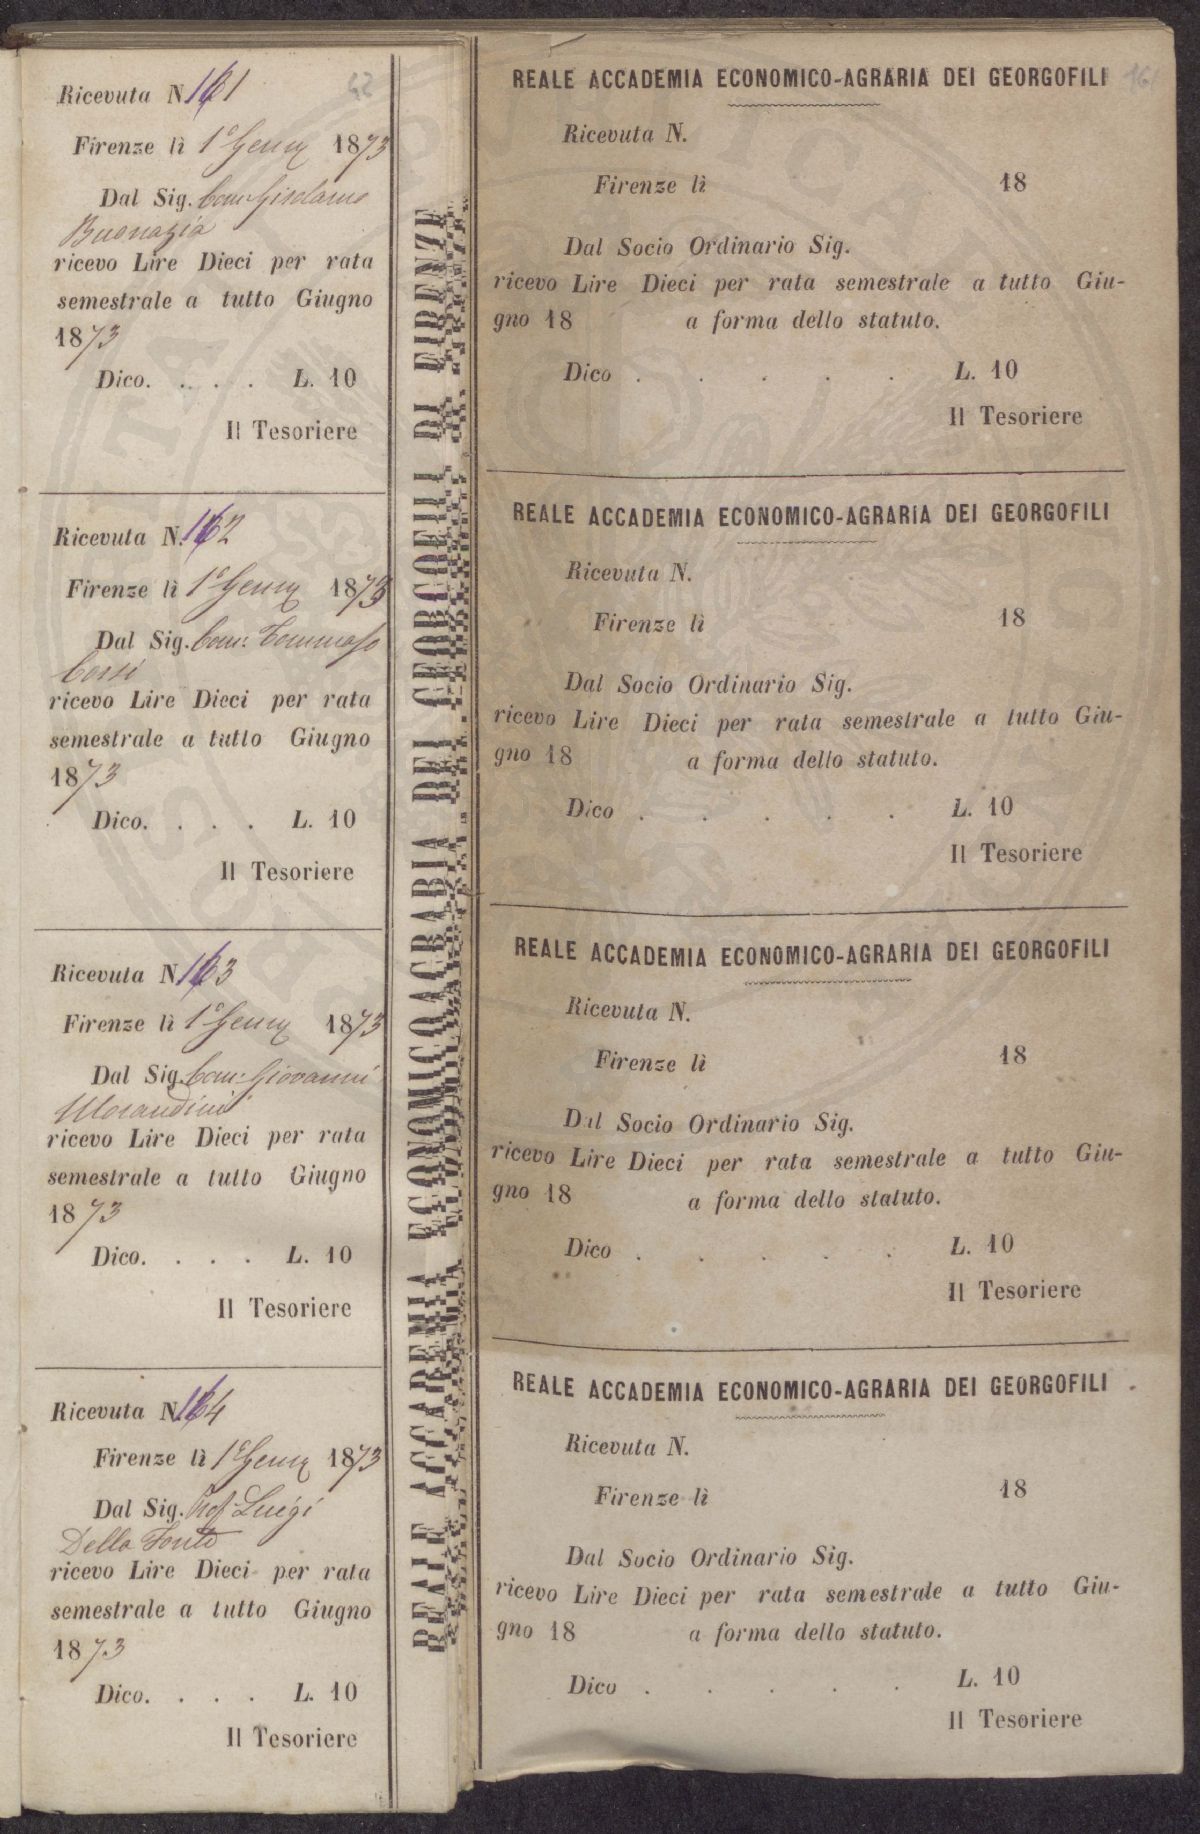 Ricevuta N. 161
Firenze lì 1° Genn 1873
Dal Sig. Cav. Girolamo
Buonazia
ricevo Lire Dieci per rata
semestrale a tutto Giugno
1873
Dico. . . . . L. 10
Il Tesoriere
Ricevuta N. 162
Firenze lì 1° Genn 1873
Dal Sig. Com: Tommaso
Corsi
ricevo Lire Dieci per rata
semestrale a tutto Giugno
1873
Dico. . . . L. 10
Il Tesoriere
Ricevuta N. 163
Firenze lì 1° Genn 1873
Dal Sig. Cav: Giovanni
Morandini
ricevo Lire Dieci per rata
semestrale a tutto Giugno
1873
Dico. . . . L. 10
Il Tesoriere
Ricevuta N. 164
Firenze lì 1° Genn 1873
Dal Sig. Prof. Luigi
Della Fonte
ricevo Lire Dieci per rata
semestrale a tutto Giugno
1873
Dico. . . . L. 10
Il Tesoriere
REALE ACCADEMIA ECONOMICO AGRARIA DEI GEORGOFILI DI FIRENZE
REALE ACCADEMIA ECONOMICO-AGRARIA DEI GEORGOFILI
161
Ricevuta N.
Firenze lì 18
Dal Socio Ordinario Sig.
ricevo Lire Dieci per rata semestrale a tutto Giu-
gno 18 a forma dello statuto.
Dico . . . . . L. 10
Il Tesoriere
REALE ACCADEMIA ECONOMICO-AGRARIA DEI GEORGOFILI
Ricevuta N.
Firenze lì 18
Dal Socio Ordinario Sig.
ricevo Lire Dieci per rata semestrale a tutto Giu-
gno 18 a forma dello statuto.
Dico . . . . . L. 10
Il Tesoriere
REALE ACCADEMIA ECONOMICO-AGRARIA DEI GEORGOFILI
Ricevuta N.
Firenze lì 18
Dal Socio Ordinario Sig.
ricevo Lire Dieci per rata semestrale a tutto Giu-
gno 18 a forma dello statuto.
Dico . . . . . L. 10
Il Tesoriere
REALE ACCADEMIA ECONOMICO-AGRARIA DEI GEORGOFILI
Ricevuta N.
Firenze lì 18
Dal Socio Ordinario Sig.
ricevo Lire Dieci per rata semestrale a tutto Giu-
gno 18 a forma dello statuto.
Dico . . . . . L. 10
Il Tesoriere